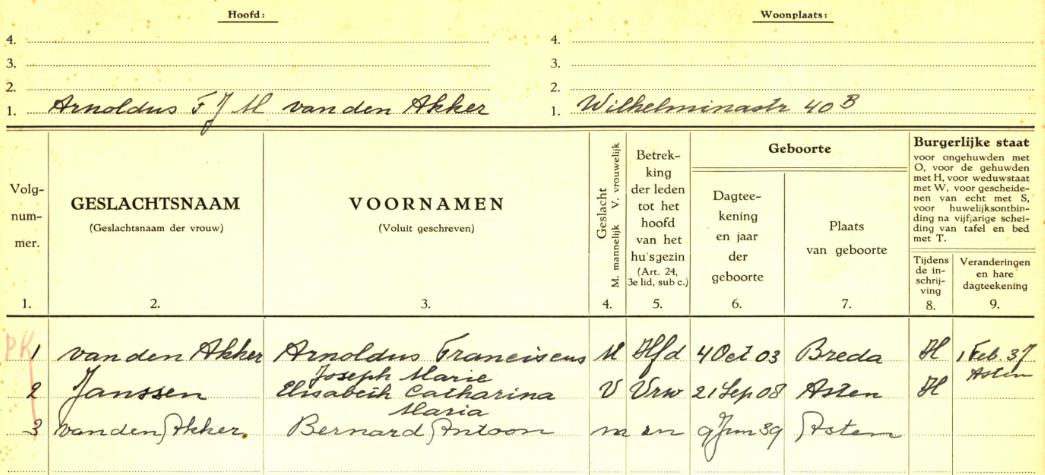 Hoofd: Woonplaats:
4. 4.
3. 3.
2. 2.
1. Arnoldus F J M van den Akker 1. Wilhelminastr 40 B
Volg-
num-
mer.
1.
GESLACHTSNAAM
(Geslachtsnaam der vrouw)
2.
VOORNAMEN
(Voluit geschreven)
3.
Geslacht
M. mannelijk V. vrouwelijk
4.
Betrek-
king
der leden
tot het
hoofd
van het
huisgezin
(Art. 24,
3e lid, sub c.)
5.
Geboorte
Dagtee-
kening
en jaar
der
geboorte
6.
Plaats
van geboorte
7.
Burgerlijke staat
voor ongehuwden met
O, voor de gehuwden
met H, voor weduwstaat
met W, voor gescheide-
nen van echt met S,
voor huwelijksontbin-
ding na vijfjarige schei-
ding van tafel en bed
met T.
Tijdens
de in-
schrij-
ving
8.
Veranderingen
en hare
dagteekening
9.
PK 1 van den Akker Arnoldus Franciscus M Hfd 4 Oct 03 Breda H 1 Feb. 37
Joseph Marie Asten
2 Janssen Elisabeth Catharina V Vrw 21 Sep 08 Asten H
Maria
3 van den Akker. Bernard Antoon m zn 9 Jun 39 Asten